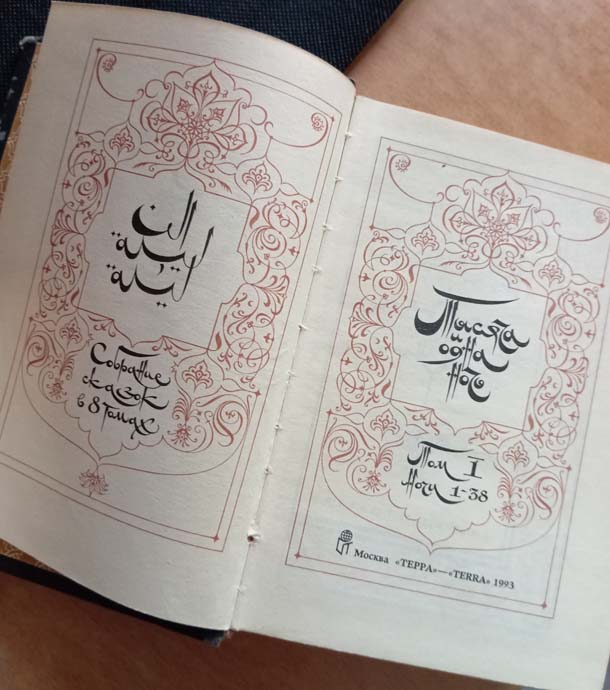 الف
ليلة
ليلة
Собрание
сказок
в 8 томах
Тысяча
и
одна
ночь
Том I
Ночи 1-38
Москва «ТЕРРА»—«TERRA» 1993